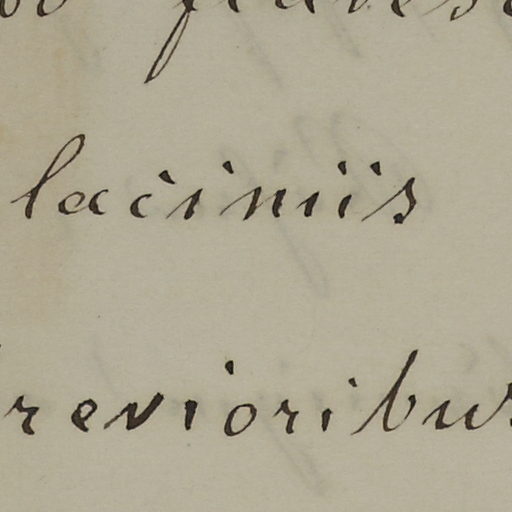 laciniis
brevioribus